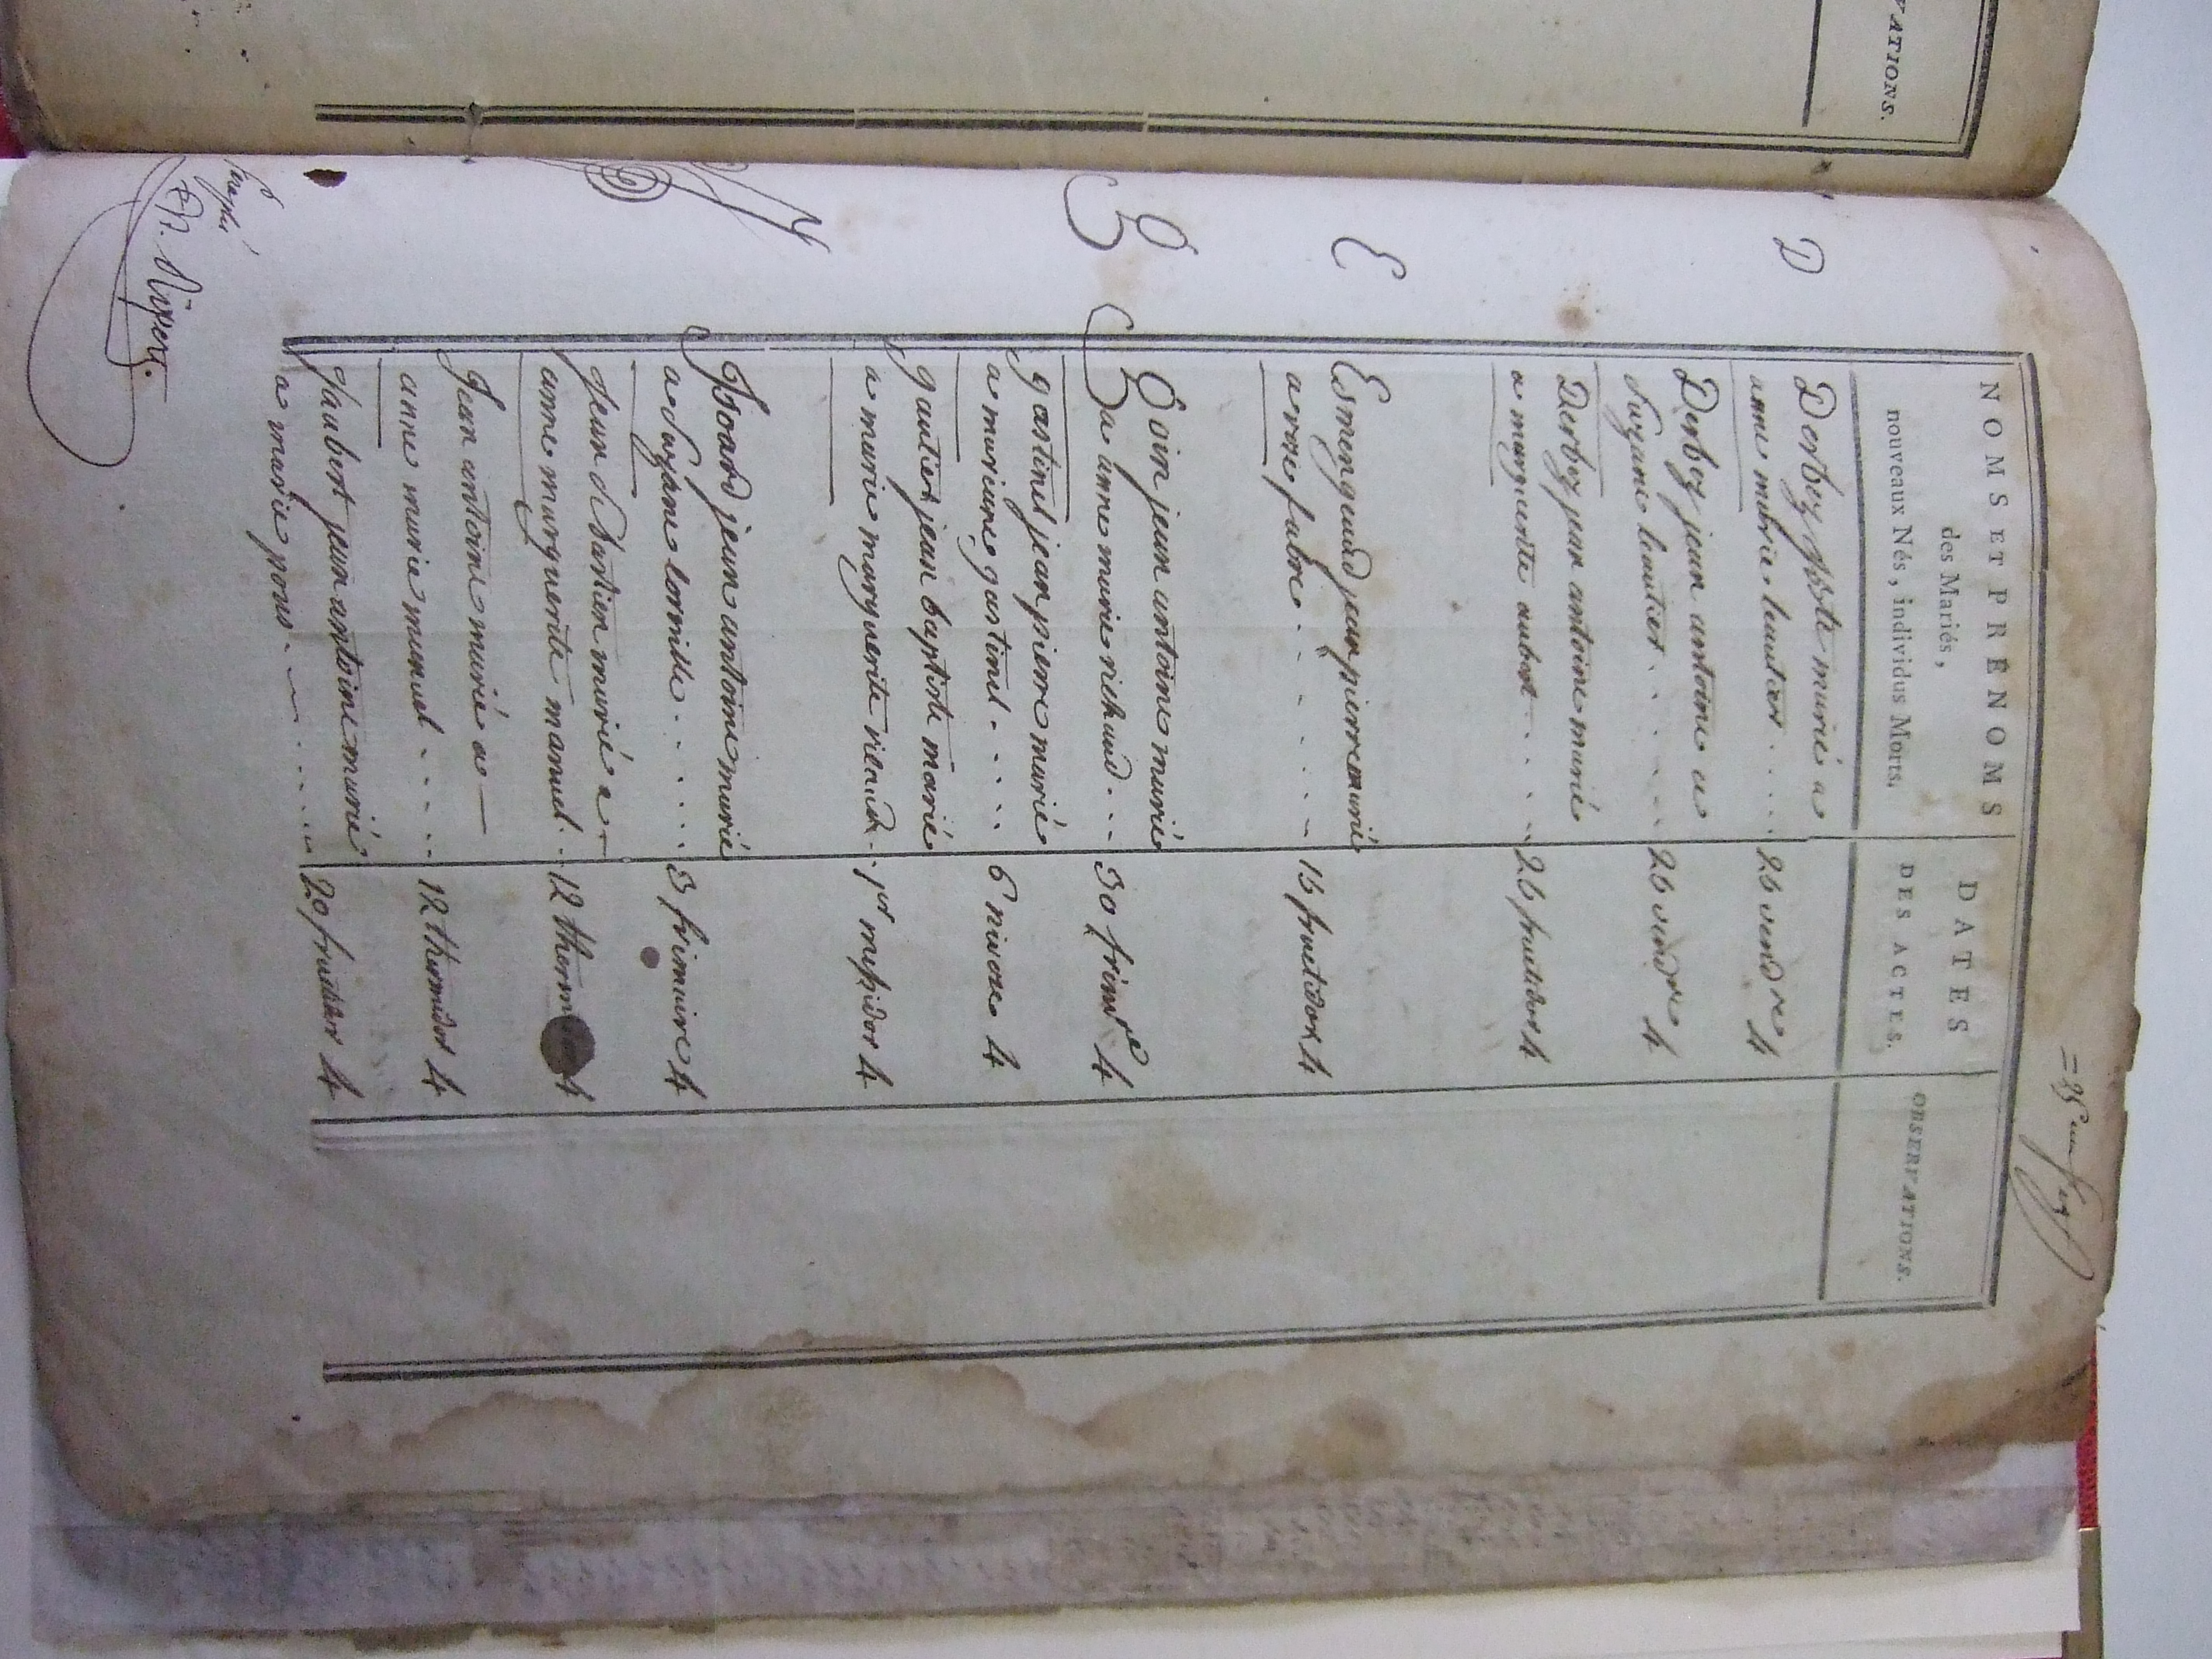 VATIONS.
NOMS ET PRÉNOMS
des Mariés,
nouveaux Nés, individus Morts.
DATES
DES ACTES.
OBSERVATIONS.
D
Derbez marié a
anne marie leautier . . . . 26 vend re 4
Derbez jean antoine a
Suzane leautier . . . . . 26 vend re 4
Derbez jean antoine marié
a marguerite aubert . . . . 26 fructidor 4
E
Esmengaud jean pierre marié
a rose fabre . . . . . 15 fructidor 4
G
Goin jean antoine marié
a anne marie richaud . . . 30 frim re 4
gastinel jean pierre marié
a marianne gastinel . . . . . 6 nivose 4
gautier jean baptiste marié
a marie marguerite richaud . 1er messidor 4
J
Isoard jean antoine marié
a Suzane cornille . . . . . 3 frimaire 4
Jean Sebastien marié a
anne marguerite manuel . . 12 therm 4
Jean antoine marié a
anne marie manuel . . . . . 12 thermidor 4
Jaubert jean antoine marié
a marie pons . . . . . 20 fructidor 4
Paraphé